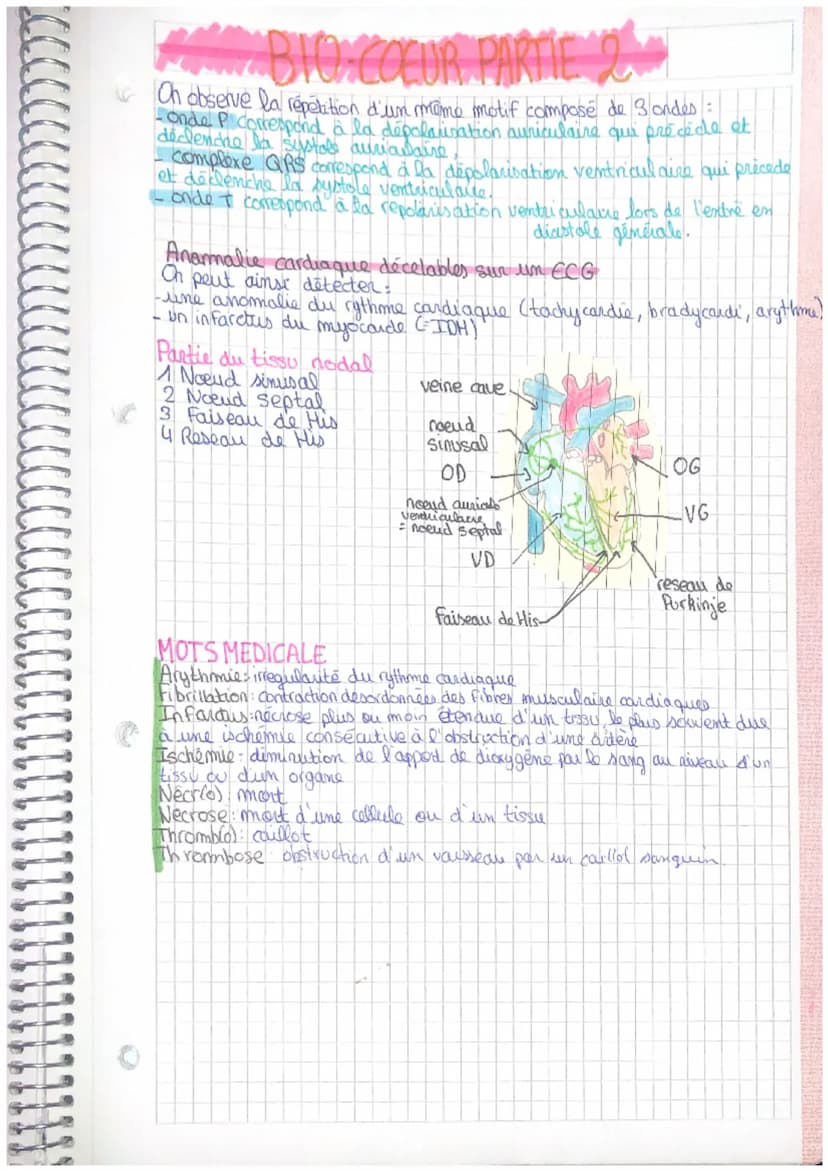 BIO-COEUR PARTIE 2
On observe la répétition d'un même motif composé de 3 ondes :
- onde P correspond à la dépolarisation auriculaire qui précède et
déclenche la systole auriculaire.
- complexe QRS correspond à la dépolarisation ventriculaire qui précède
et déclenche la systole ventriculaire.
- onde T correspond à la repolarisation ventriculaire lors de l'entré en
diastole générale.
Anormalie cardiaque décelables sur un ECG
On peut ainsi détecter :
- une anomalie du rythme cardiaque (tachycardie, bradycardi, arythmie)
- un infarctus du myocarde (=IDM)
Partie du tissu nodal
1 Noeud sinusal
2 Noeud septal
3 Faiseau de His
4 Reseau de His
veine cave
noeud
sinusal
OD
noeud auriculo
ventriculaire
= noeud septal
VD
Faiseau de His
OG
VG
reseau de
Purkinje
MOTS MEDICALE
Arythmie : irregularité du rythme cardiaque
Fibrillation : contraction desordonnées des fibres musculaire cardiaques
Infarctus : nécrose plus ou moin étendue d'un tissu, le plus souvent due
à une ischémie consécutive à l'obstruction d'une artère
Ischémie : diminution de l'apport de dioxygène par le sang au niveau d'un
tissu ou d'un organe
Nécr(o) : mort
Necrose : mort d'une cellule ou d'un tissu
Thromb(o) : caillot
Thrombose : obstruction d'un vaisseau par un caillot sanguin